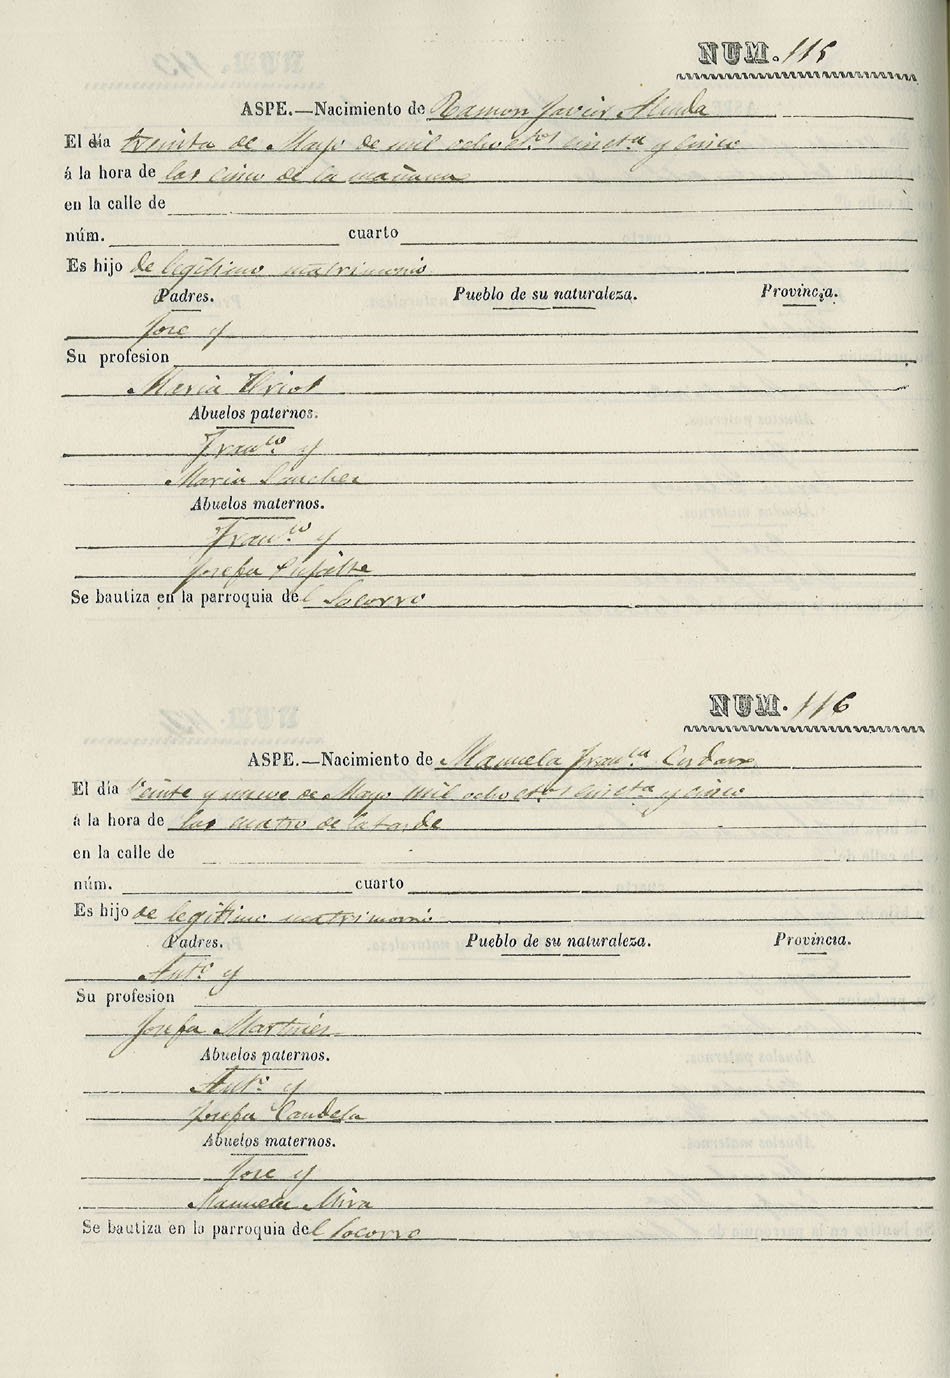 NUM. 115
ASPE.—Nacimiento de Ramon Javier
El día treinta de Mayo de mil ochoctos. cincta. y cinco
á la hora de las cinco de la mañana
en la calle de
núm. cuarto
Es hijo de legitimo matrimonio
Padres. Pueblo de su naturaleza. Provincia.
Jose y
Su profesion
Maria
Abuelos paternos.
Franco. y
Maria Sanchez
Abuelos maternos.
Franco. y
Josefa
Se bautiza en la parroquia del Socorro
NUM. 116
ASPE.—Nacimiento de Manuela Franca. Cerdan
El día veinte y nueve de Mayo mil ochoctos. cincta. y cinco
á la hora de las cuatro de la tarde
en la calle de
núm. cuarto
Es hijo de legitimo matrimonio
Padres. Pueblo de su naturaleza. Provincia.
Anto. y
Su profesion
Josefa Martinez
Abuelos paternos.
Anto. y
Josefa Candela
Abuelos maternos.
Jose y
Manuela Mira
Se bautiza en la parroquia del Socorro